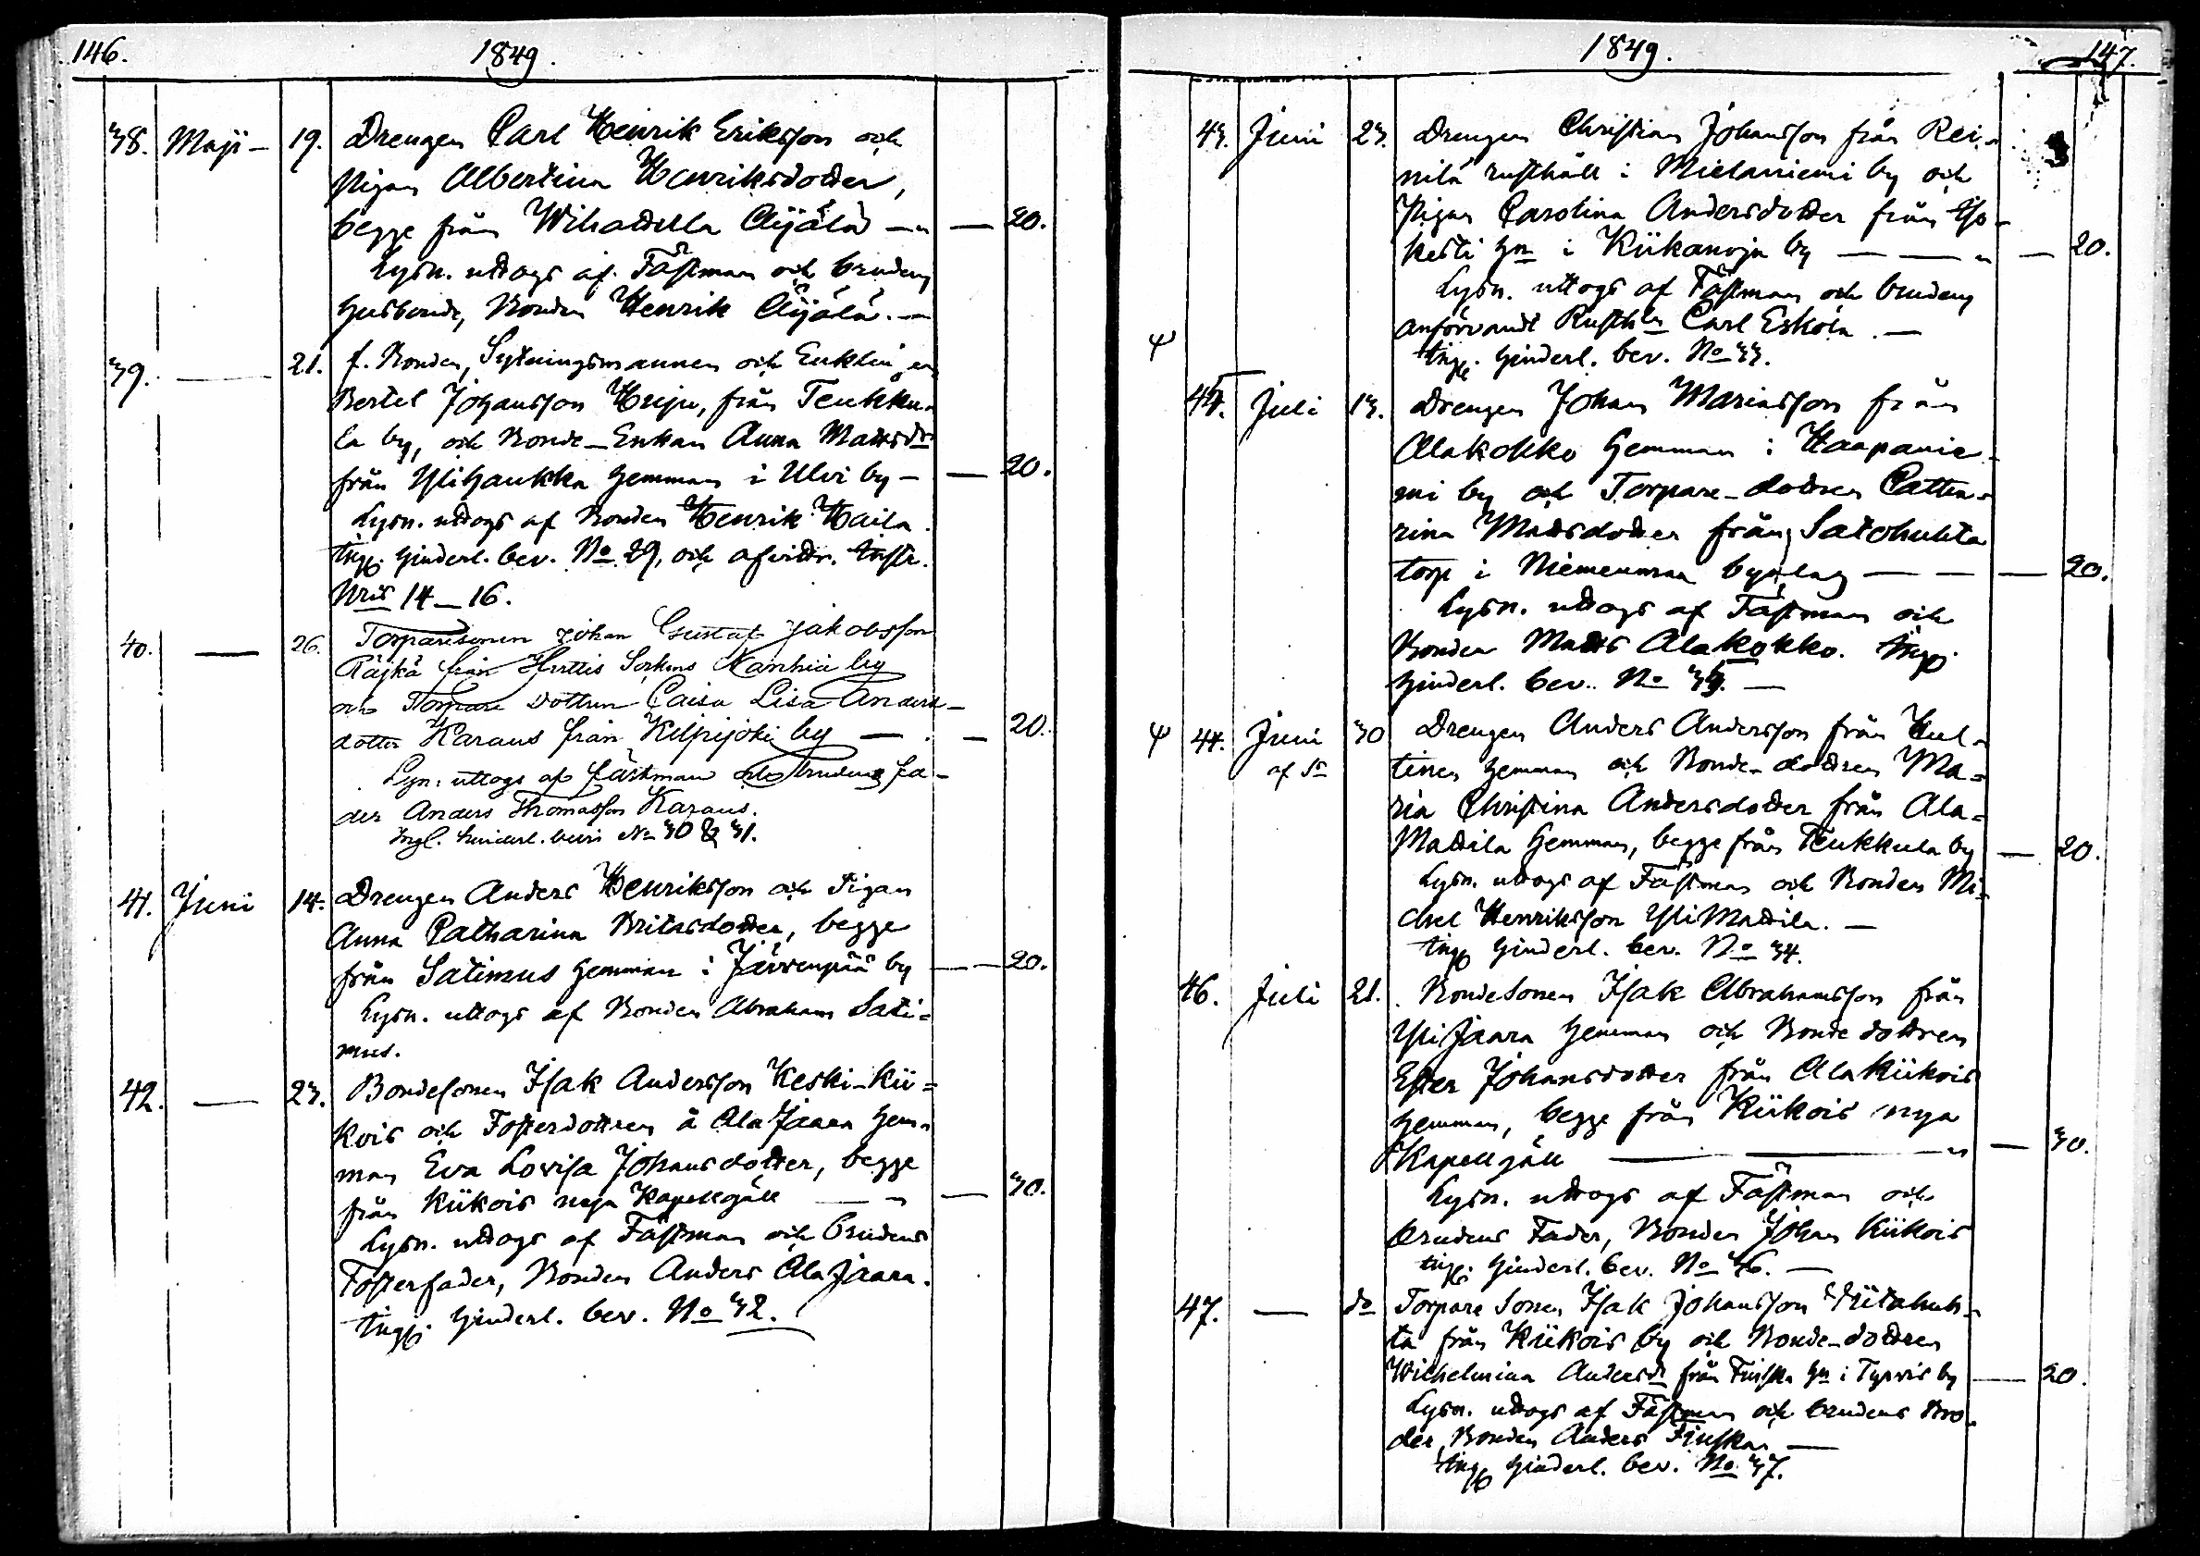 146. 1849.
38. Maji — 19. Drengen Carl Henrik Eriksson och
Pigan Albertina Henriksdotter,
begge från Wihattula Äijälä — — 20.
Lysn. uttogs af Fästman och brudens
husbonde, Bonden Henrik Äijälä. —
39. — 21. f. Bonden, Sytningsmannen och Enklingen
Bertel Johansson Huju, från Teukku-
la by, och Bonde-Enkan Anna Mattsdr
från Ylihaukka hemman i Ulvi by — — 20.
Lysn. uttogs af Bonden Henrik Haila.
hinderl. bev. No 29, och afvittr. Instr.
Nris 14—16.
40. — 26. Torparesonen Johan Gustaf Jakobsson
Räjkä från Hvittis Sockens Kanhia by
och Torpare dottren Caisa Lisa Anders-
dotter Karaus från Kilpijoki by — — 20.
Lysn. uttogs af fästman och brudens fa-
der Anders Thomasson Karaus.
Ingl. hinderl. bevis No 30 & 31.
41. Juni 14. Drengen Anders Henriksson och Pigan
Anna Catharina Britasdotter, begge
från Satimus hemman i Järvenpää by — — 20.
Lysn. uttogs af Bonden Abraham Sati-
mus.
42. — 23. Bondesonen Isak Andersson Keski-Kii-
kois och Fosterdottren å Ala Jaara hem-
man Eva Lovisa Johansdotter, begge
från Kiikois nya Kapellgäll — — 30.
Lysn. uttogs af Fästman och brudens
Fosterfader, Bonden Anders Ala Jaara.
hinderl. bev. No 32.
1849. 147.
43. Juni 23. Drengen Christian Johansson från Rei-
nilä rusthåll i Mielaniemi by och
Pigan Carolina Andersdotter från Iso-
kesti hn i Kiikanoja by — — — 20.
Lysn. uttogs af Fästman och brudens
anförvandt Rusth:n Carl Eskola. —
hinderl. bev. No 33.
45. Juli 13. Drengen Johan Mariasson från
Alakokko hemman i Haapanie-
mi by och Torpare-dottren Catha-
rina Mattsdotter från Satohuhta
torp i Niemenmaa byalag — — — 20.
Lysn. uttogs af Fästman och
Bonden Matts Alakokko.
hinderl. bev. No 35. —
44. Juni 30 Drengen Anders Andersson från Kul-
af Sn
tinen hemman och Bonde-dottren Ma-
ria Christina Andersdotter från Ala-
Mattila hemman, begge från Teukkula by — 20.
Lysn. uttogs af Fästman och Bonden Mi-
chel Henriksson YliMattila. —
hinderl. bev. No 34.
46. Juli 21. Bondesonen Isak Abrahamsson från
YliJaara hemman och Bonde dottren
Ester Johansdotter från AlaKiikois
hemman, begge från Kiikois nya
Kapellgäll — — 30.
Lysn. uttogs af Fästman och
brudens Fader, Bonden Johan Kiikois
hinderl. bev. No 36. —
47. — do Torpare Sonen Isak Johansson Viitahuh-
ta från Kiikois by och Bonde-dottren
Wilhelmina Andersdr från Finska hn i Tyrvis by — 20.
Lysn. uttogs af Fästman och brudens Bro-
der, Bonden Anders Finska. —
hinderl. bev. No 37.